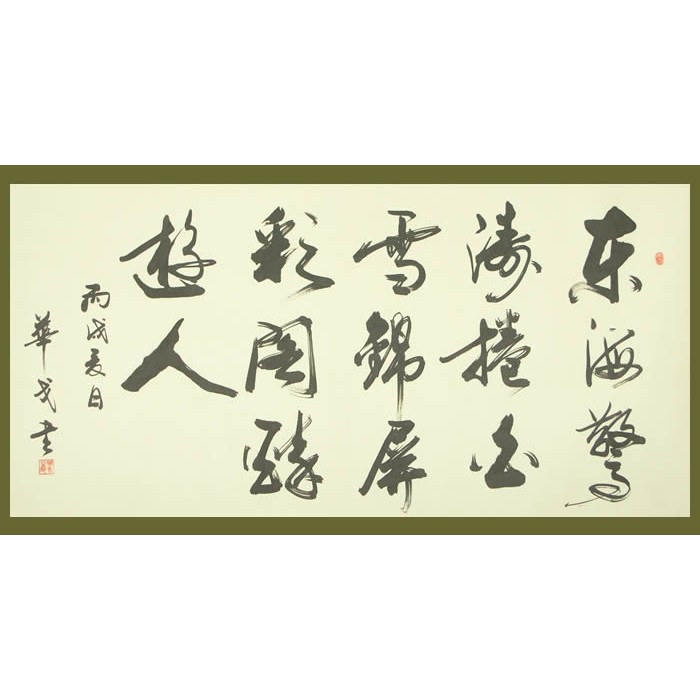 东海惊
涛捲白
雪锦屏
彩阁醉
遊人
丙戌夏日
華戈书